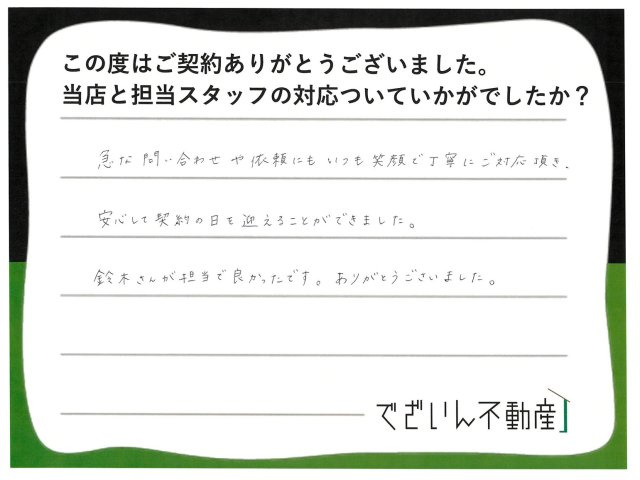 この度はご契約ありがとうございました。
当店と担当スタッフの対応ついていかがでしたか？
急な問い合わせや依頼にもいつも笑顔で丁寧にご対応頂き、
安心して契約の日を迎えることができました。
鈴木さんが担当で良かったです。ありがとうございました。
でざいん不動産